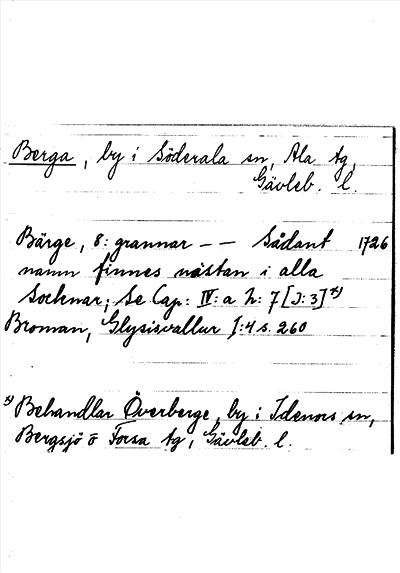 Berga, by i Söderala sn, Ala tg,
Gävleb. l.
Bärge, 8: grannar – – Sådant 1726
namn finnes nästan i alla
Socknar; Se Cap: IV: a h: 7 [I: 3] *)
Broman, Glysisvallur I:4 s. 260
*) Behandlar Överberge, by i Idenors sn,
Bergsjö o Forsa tg, Gävleb. l.